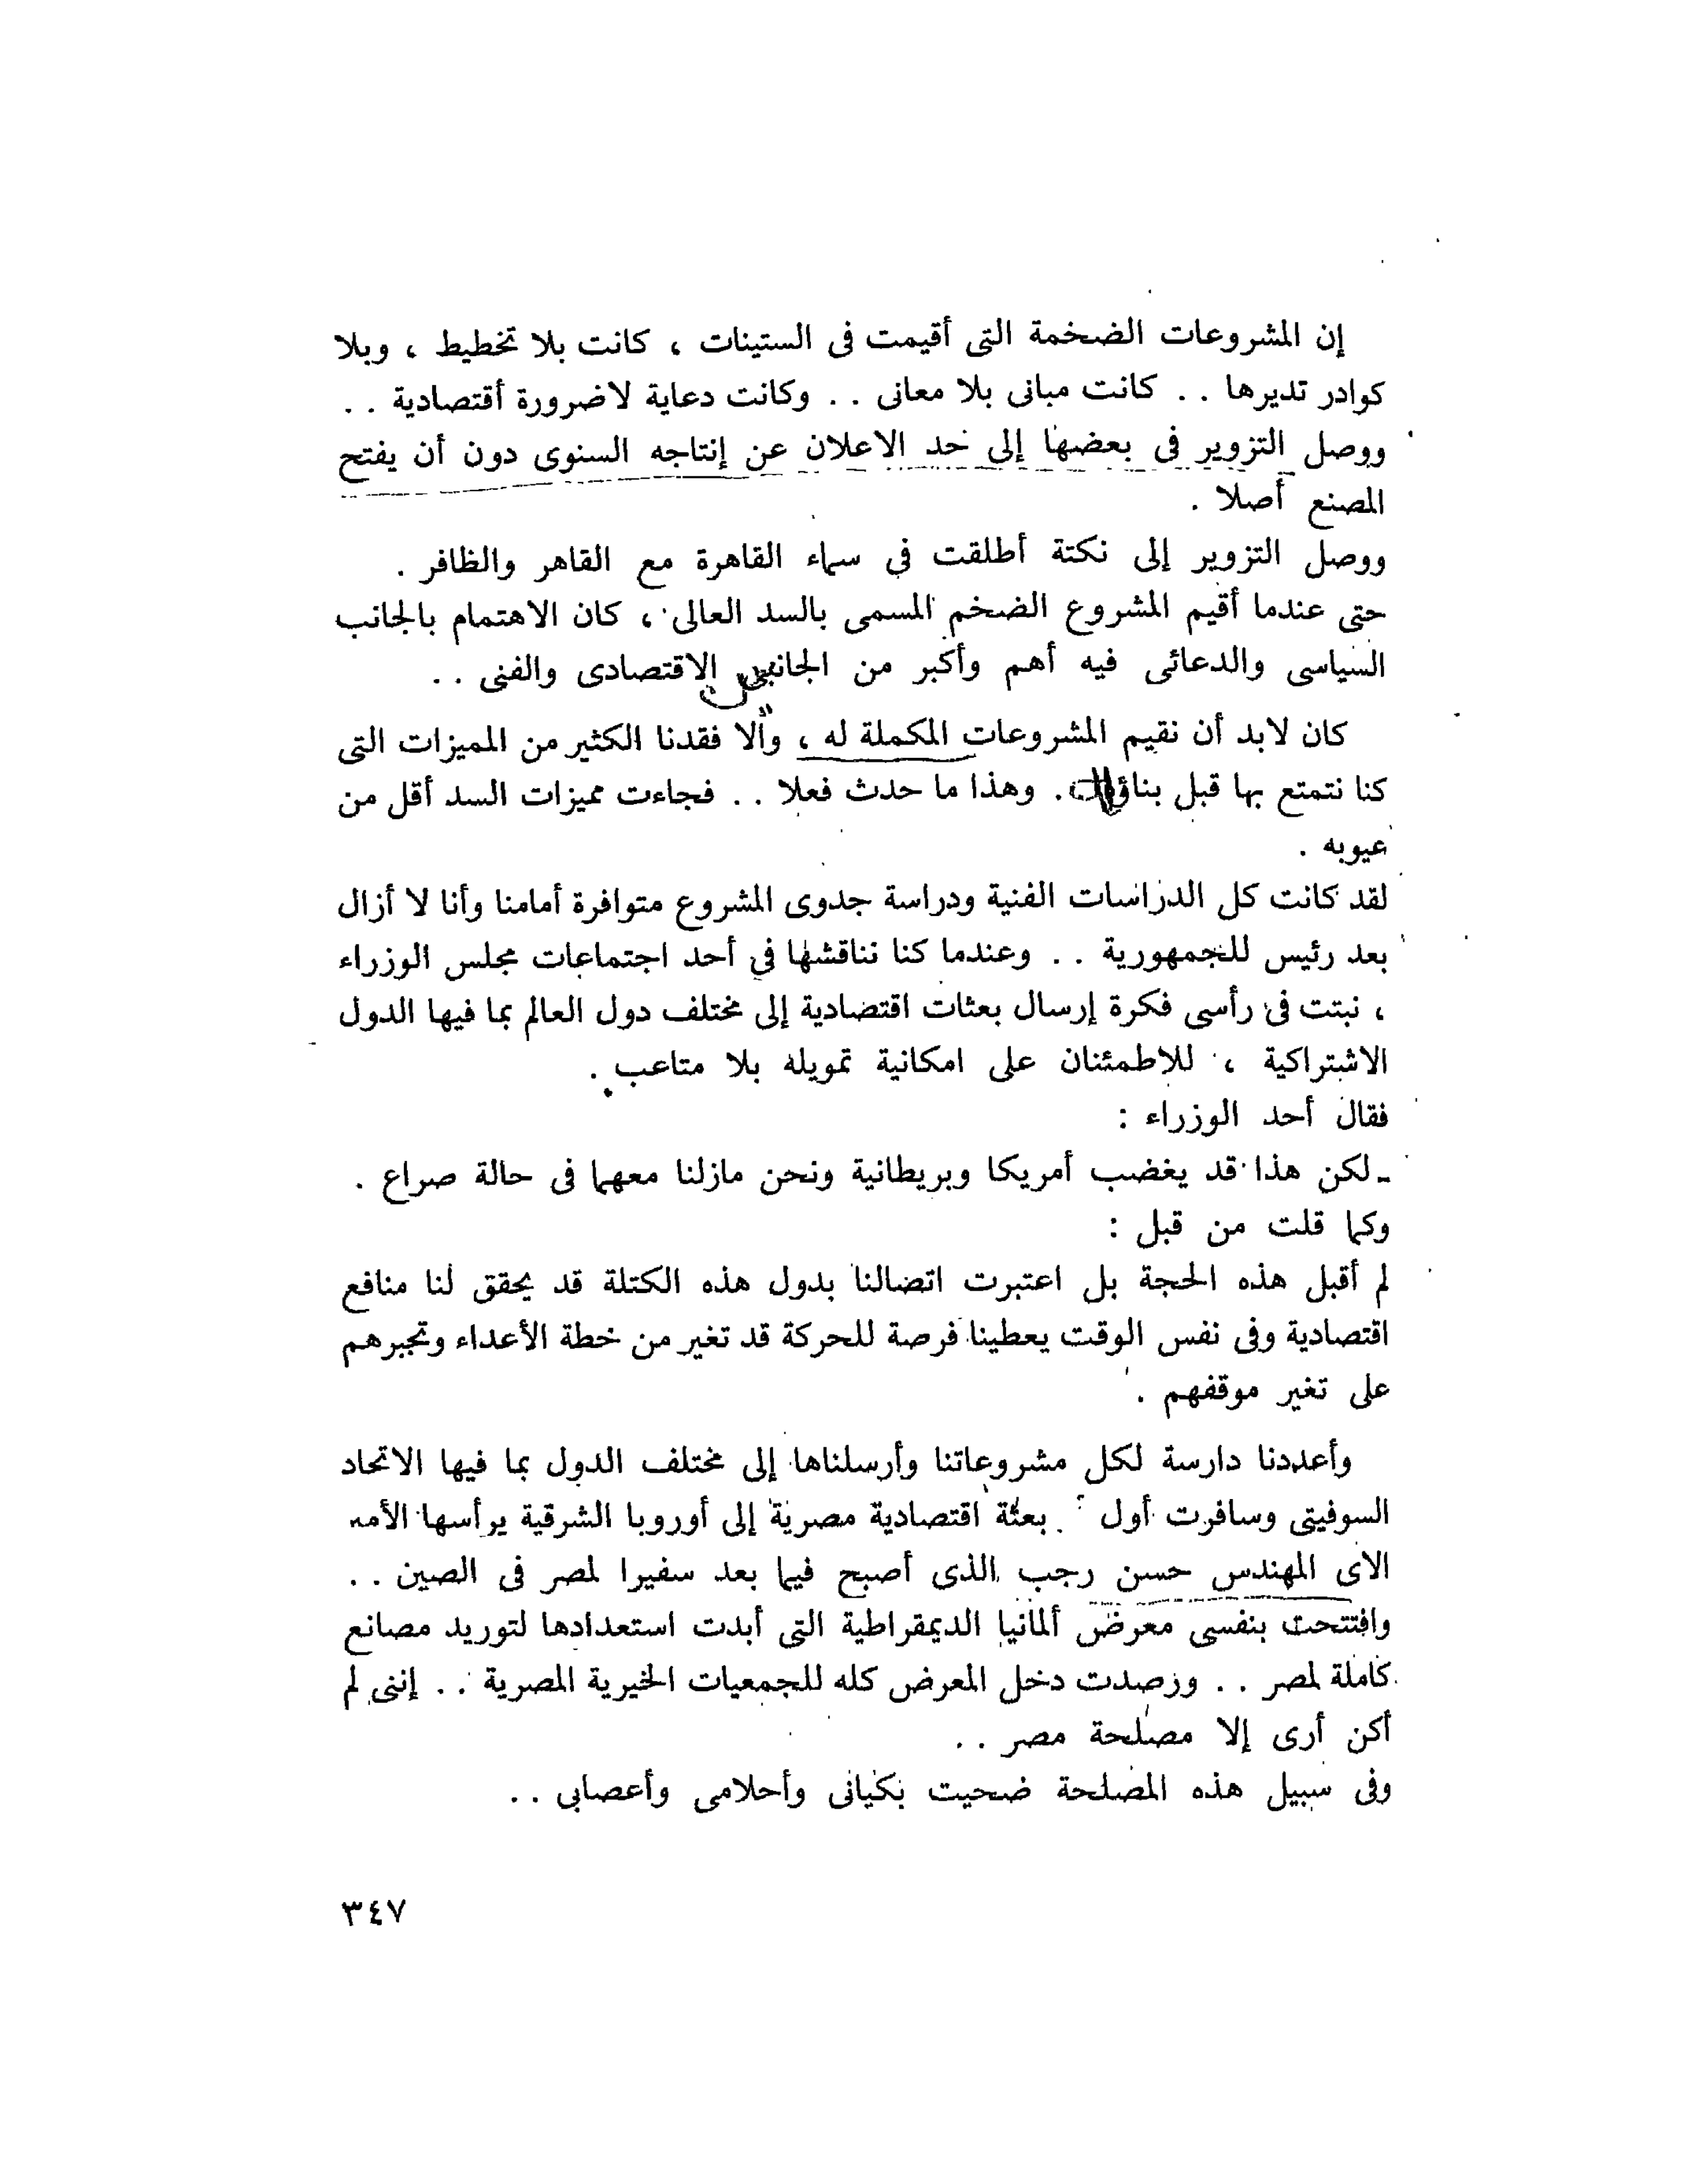 إن المشروعات الضخمة التى أقيمت فى الستينات ، كانت بلا تخطيط ، وبلا
كوادر تديرها . . كانت مبانى بلا معانى . . وكانت دعاية لاضرورة أقتصادية . .
ووصل التزوير فى بعضها إلى حد الاعلان عن إنتاجه السنوى دون أن يفتح
المصنع أصلا .
ووصل التزوير إلى نكتة أطلقت فى سماء القاهرة مع القاهر والظافر .
حتى عندما أقيم المشروع الضخم المسمى بالسد العالى ، كان الاهتمام بالجانب
السياسى والدعائى فيه أهم وأكبر من الاقتصادى والفنى . .
كان لابد أن نقيم المشروعات المكملة له ، وألا فقدنا الكثير من المميزات التى
كنا نتمتع بها قبل . وهذا ما حدث فعلا . . فجاءت مميزات السد أقل من
عيوبه .
لقد كانت كل الدراسات الفنية ودراسة جدوى المشروع متوافرة أمامنا وأنا لا أزال
بعد رئيس للجمهورية . . وعندما كنا نناقشها فى أحد اجتماعات مجلس الوزراء
، نبتت فى رأسى فكرة إرسال بعثات اقتصادية إلى مختلف دول العالم بما فيها الدول
الاشتراكية ، للاطمئنان على امكانية تمويله بلا متاعب .
فقال أحد الوزراء :
ـ لكن هذا قد يغضب أمريكا وبريطانية ونحن مازلنا معهما فى حالة صراع .
وكما قلت من قبل :
لم أقبل هذه الحجة بل اعتبرت اتصالنا بدول هذه الكتلة قد يحقق لنا منافع
اقتصادية وفى نفس الوقت يعطينا فرصة للحركة قد تغير من خطة الأعداء وتجبرهم
على تغير موقفهم .
وأعددنا دارسة لكل مشروعاتنا وأرسلناها إلى مختلف الدول بما فيها الاتحاد
السوفيتى وسافرت أول بعثة اقتصادية مصرية إلى أوروبا الشرقية يرأسها
الاى المهندس حسن رجب الذى أصبح فيما بعد سفيرا لمصر فى الصين . .
وافتتحت بنفسى معرض ألمانيا الديمقراطية التى أبدت استعدادها لتوريد مصانع
كاملة لمصر . . ورصدت دخل المعرض كله للجمعيات الخيرية المصرية . . إننى لم
أكن أرى إلا مصلحة مصر . .
وفى سبيل هذه المصلحة ضحيت بكيانى وأحلامى وأعصابى . .
٣٤٧